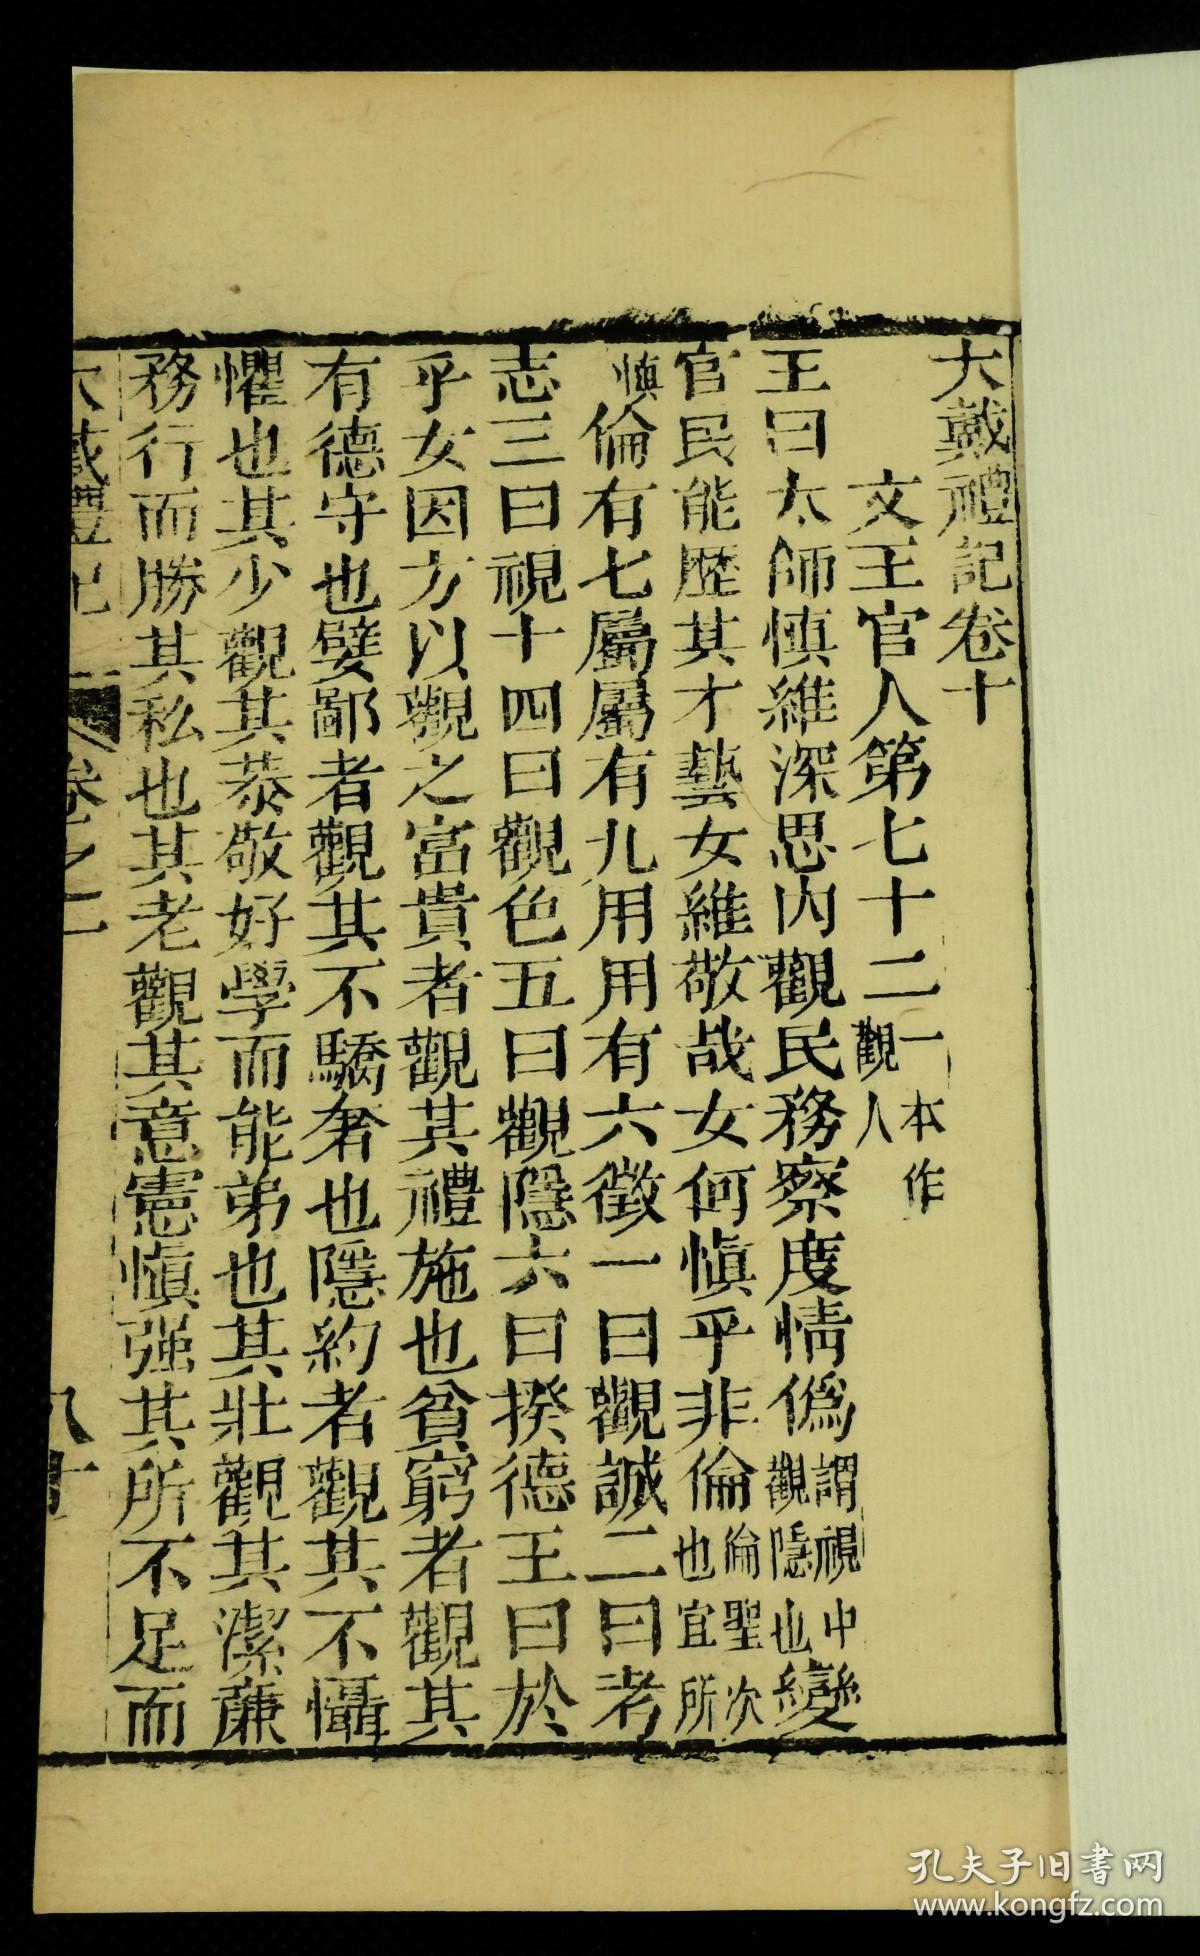 大戴禮記卷十
文王官人第七十二一本作觀人
王曰太師慎維深思內觀民務察度情僞謂視中觀隱也變
官民能歷其才藝女維敬哉女何愼乎非倫倫聖次也宜所
慎倫有七屬屬有九用用有六徵一曰觀誠二曰考
志三曰視十四曰觀色五曰觀隱六曰揆德王曰於
乎女因方以觀之富貴者觀其禮施也貧窮者觀其
有德守也嬖鄙者觀其不驕奢也隱約者觀其不懾
懼也其少觀其恭敬好學而能弟也其壯觀其潔廉
務行而勝其私也其老觀其意憲愼强其所不足而
大戴禮記 卷之二
孔夫子旧書网
www.kongfz.com